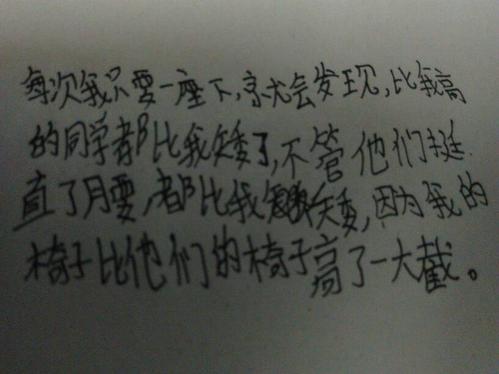 每次我只要一座下,就会发现,比我高
的同学都比我矮了,不管他们挺
直了腰,都比我矮,因为我的
椅子比他们的椅子高了一大截。